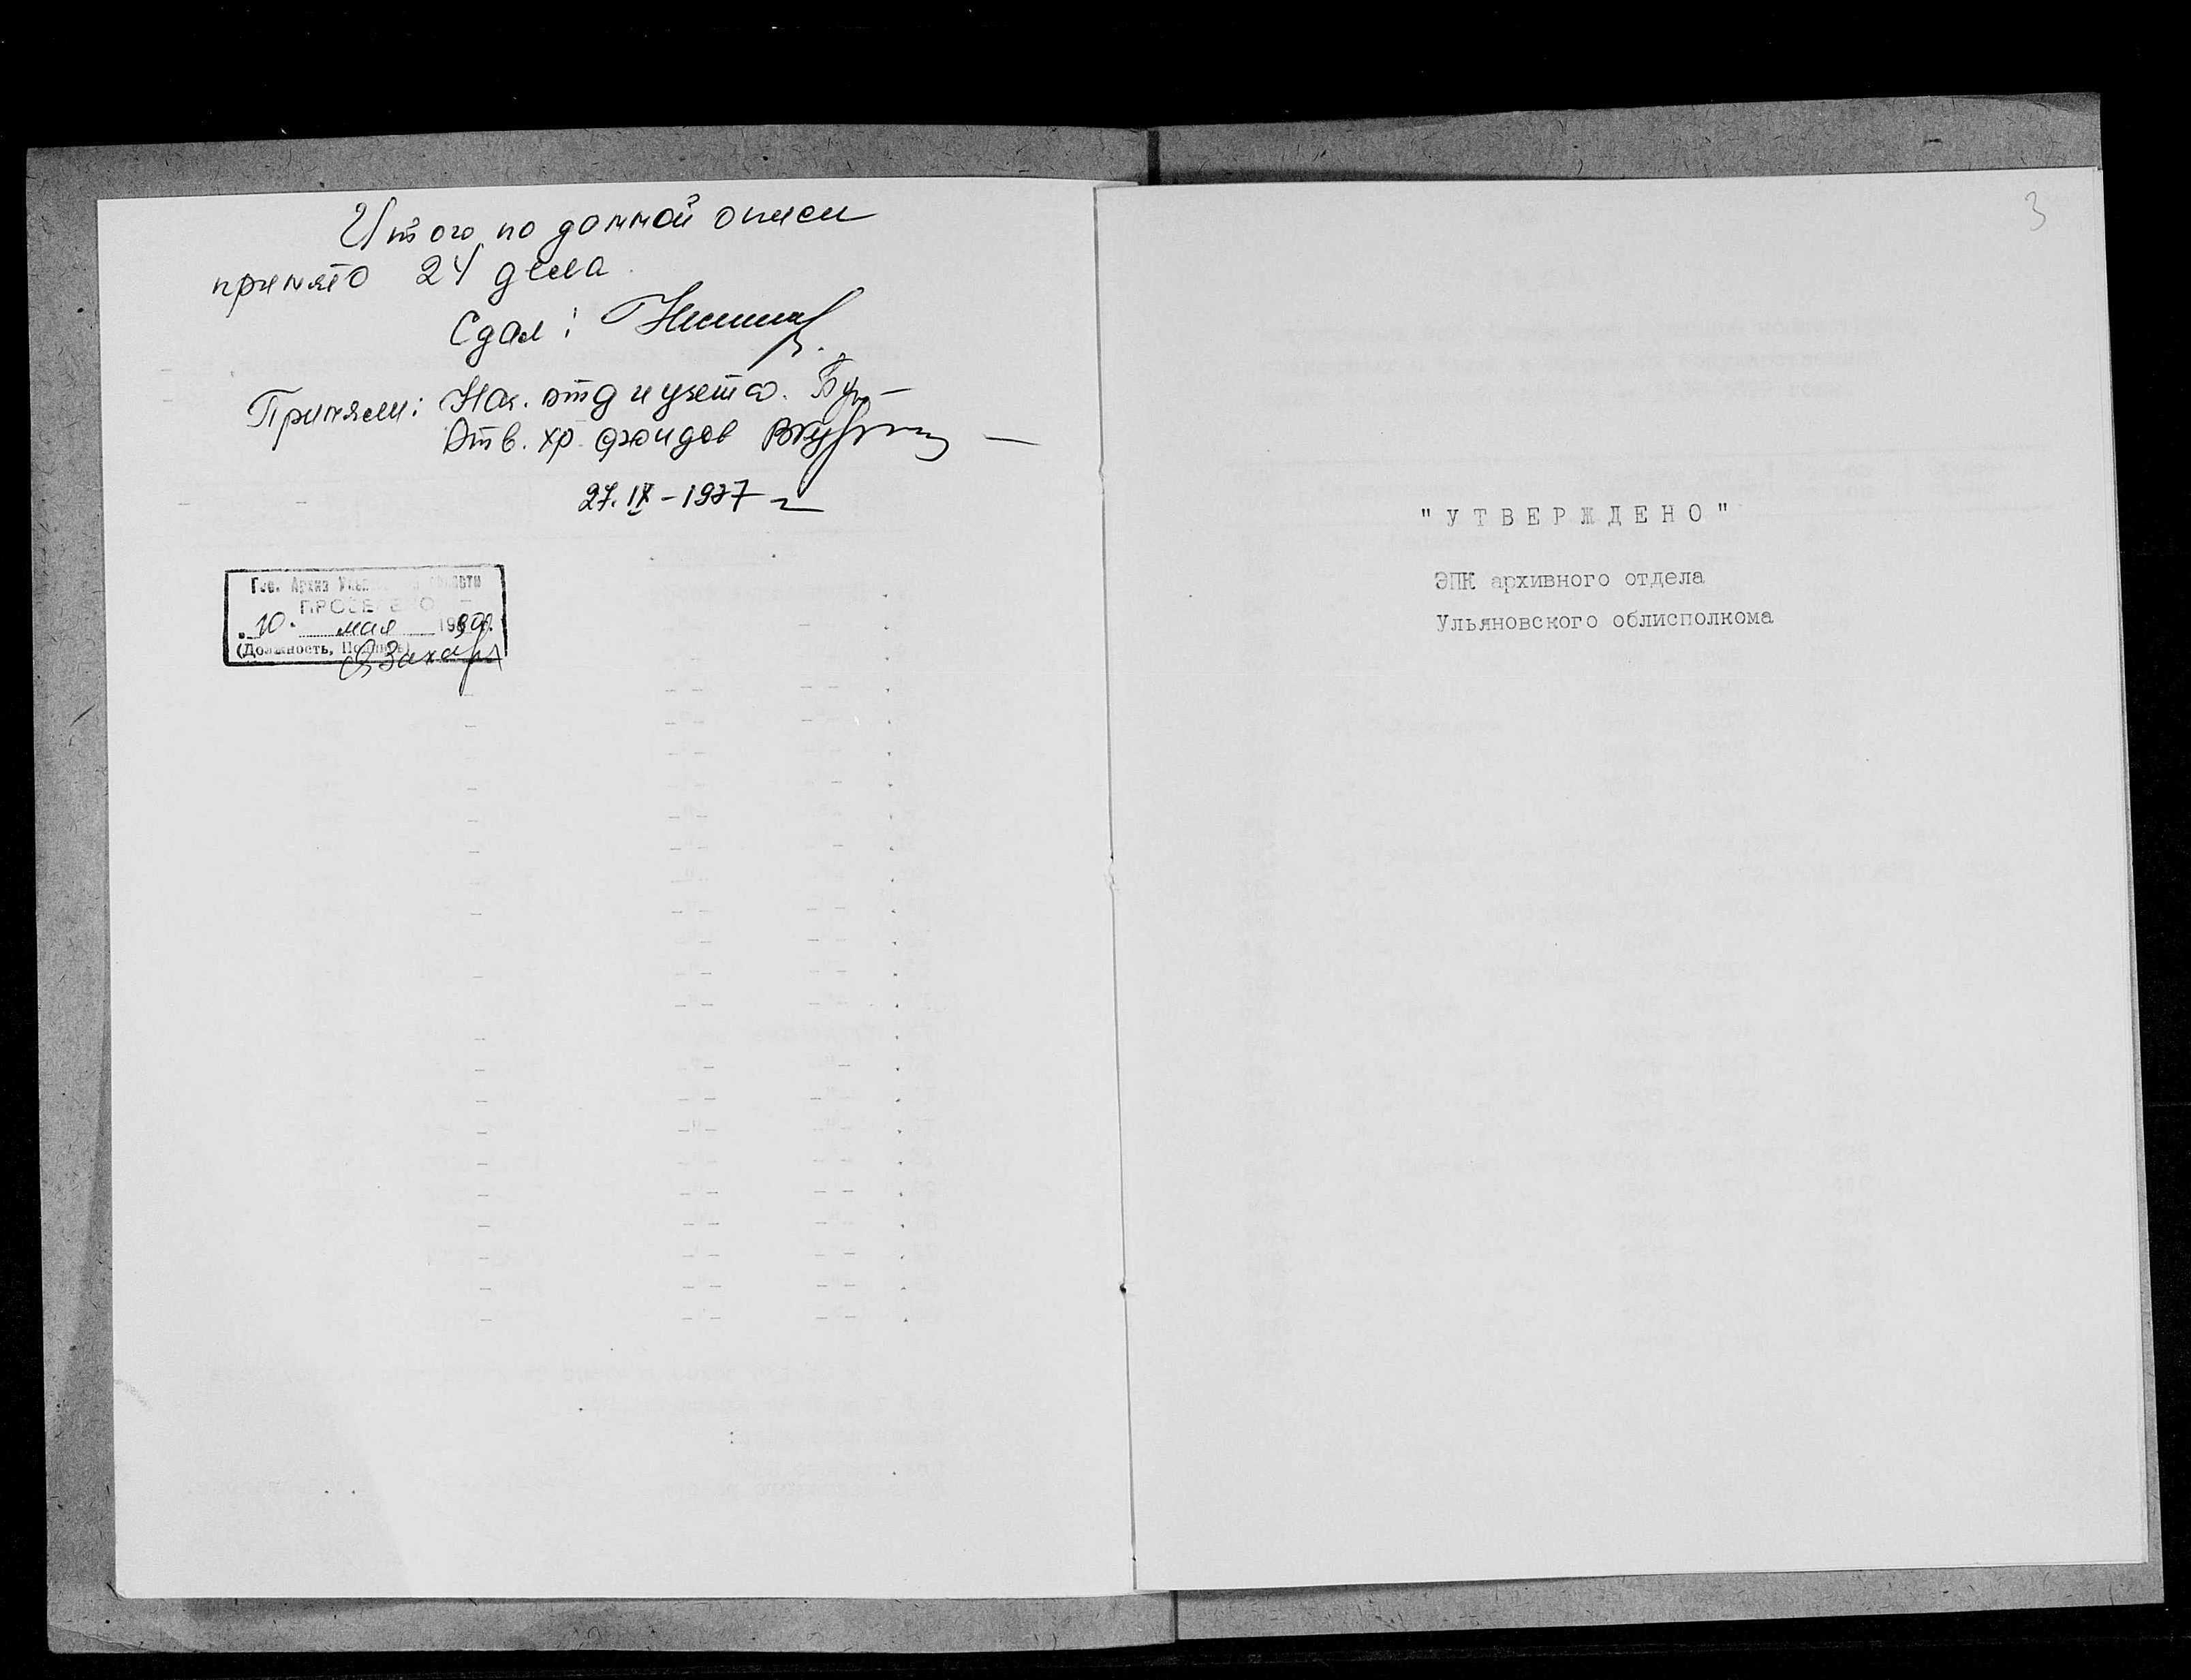 Итого по данной описи
принято 24 дела.
Сдал:
Приняли: Нач. отд и учета.
Отв. хр. фондов
27. IX – 1977 г
Гос. Архив Ульяновской области
ПРОВЕРЕНО
"10" мая 1989г.
(Должность, Подпись)
3
"УТВЕРЖДЕНО"
ЭПК архивного отдела
Ульяновского облисполкома